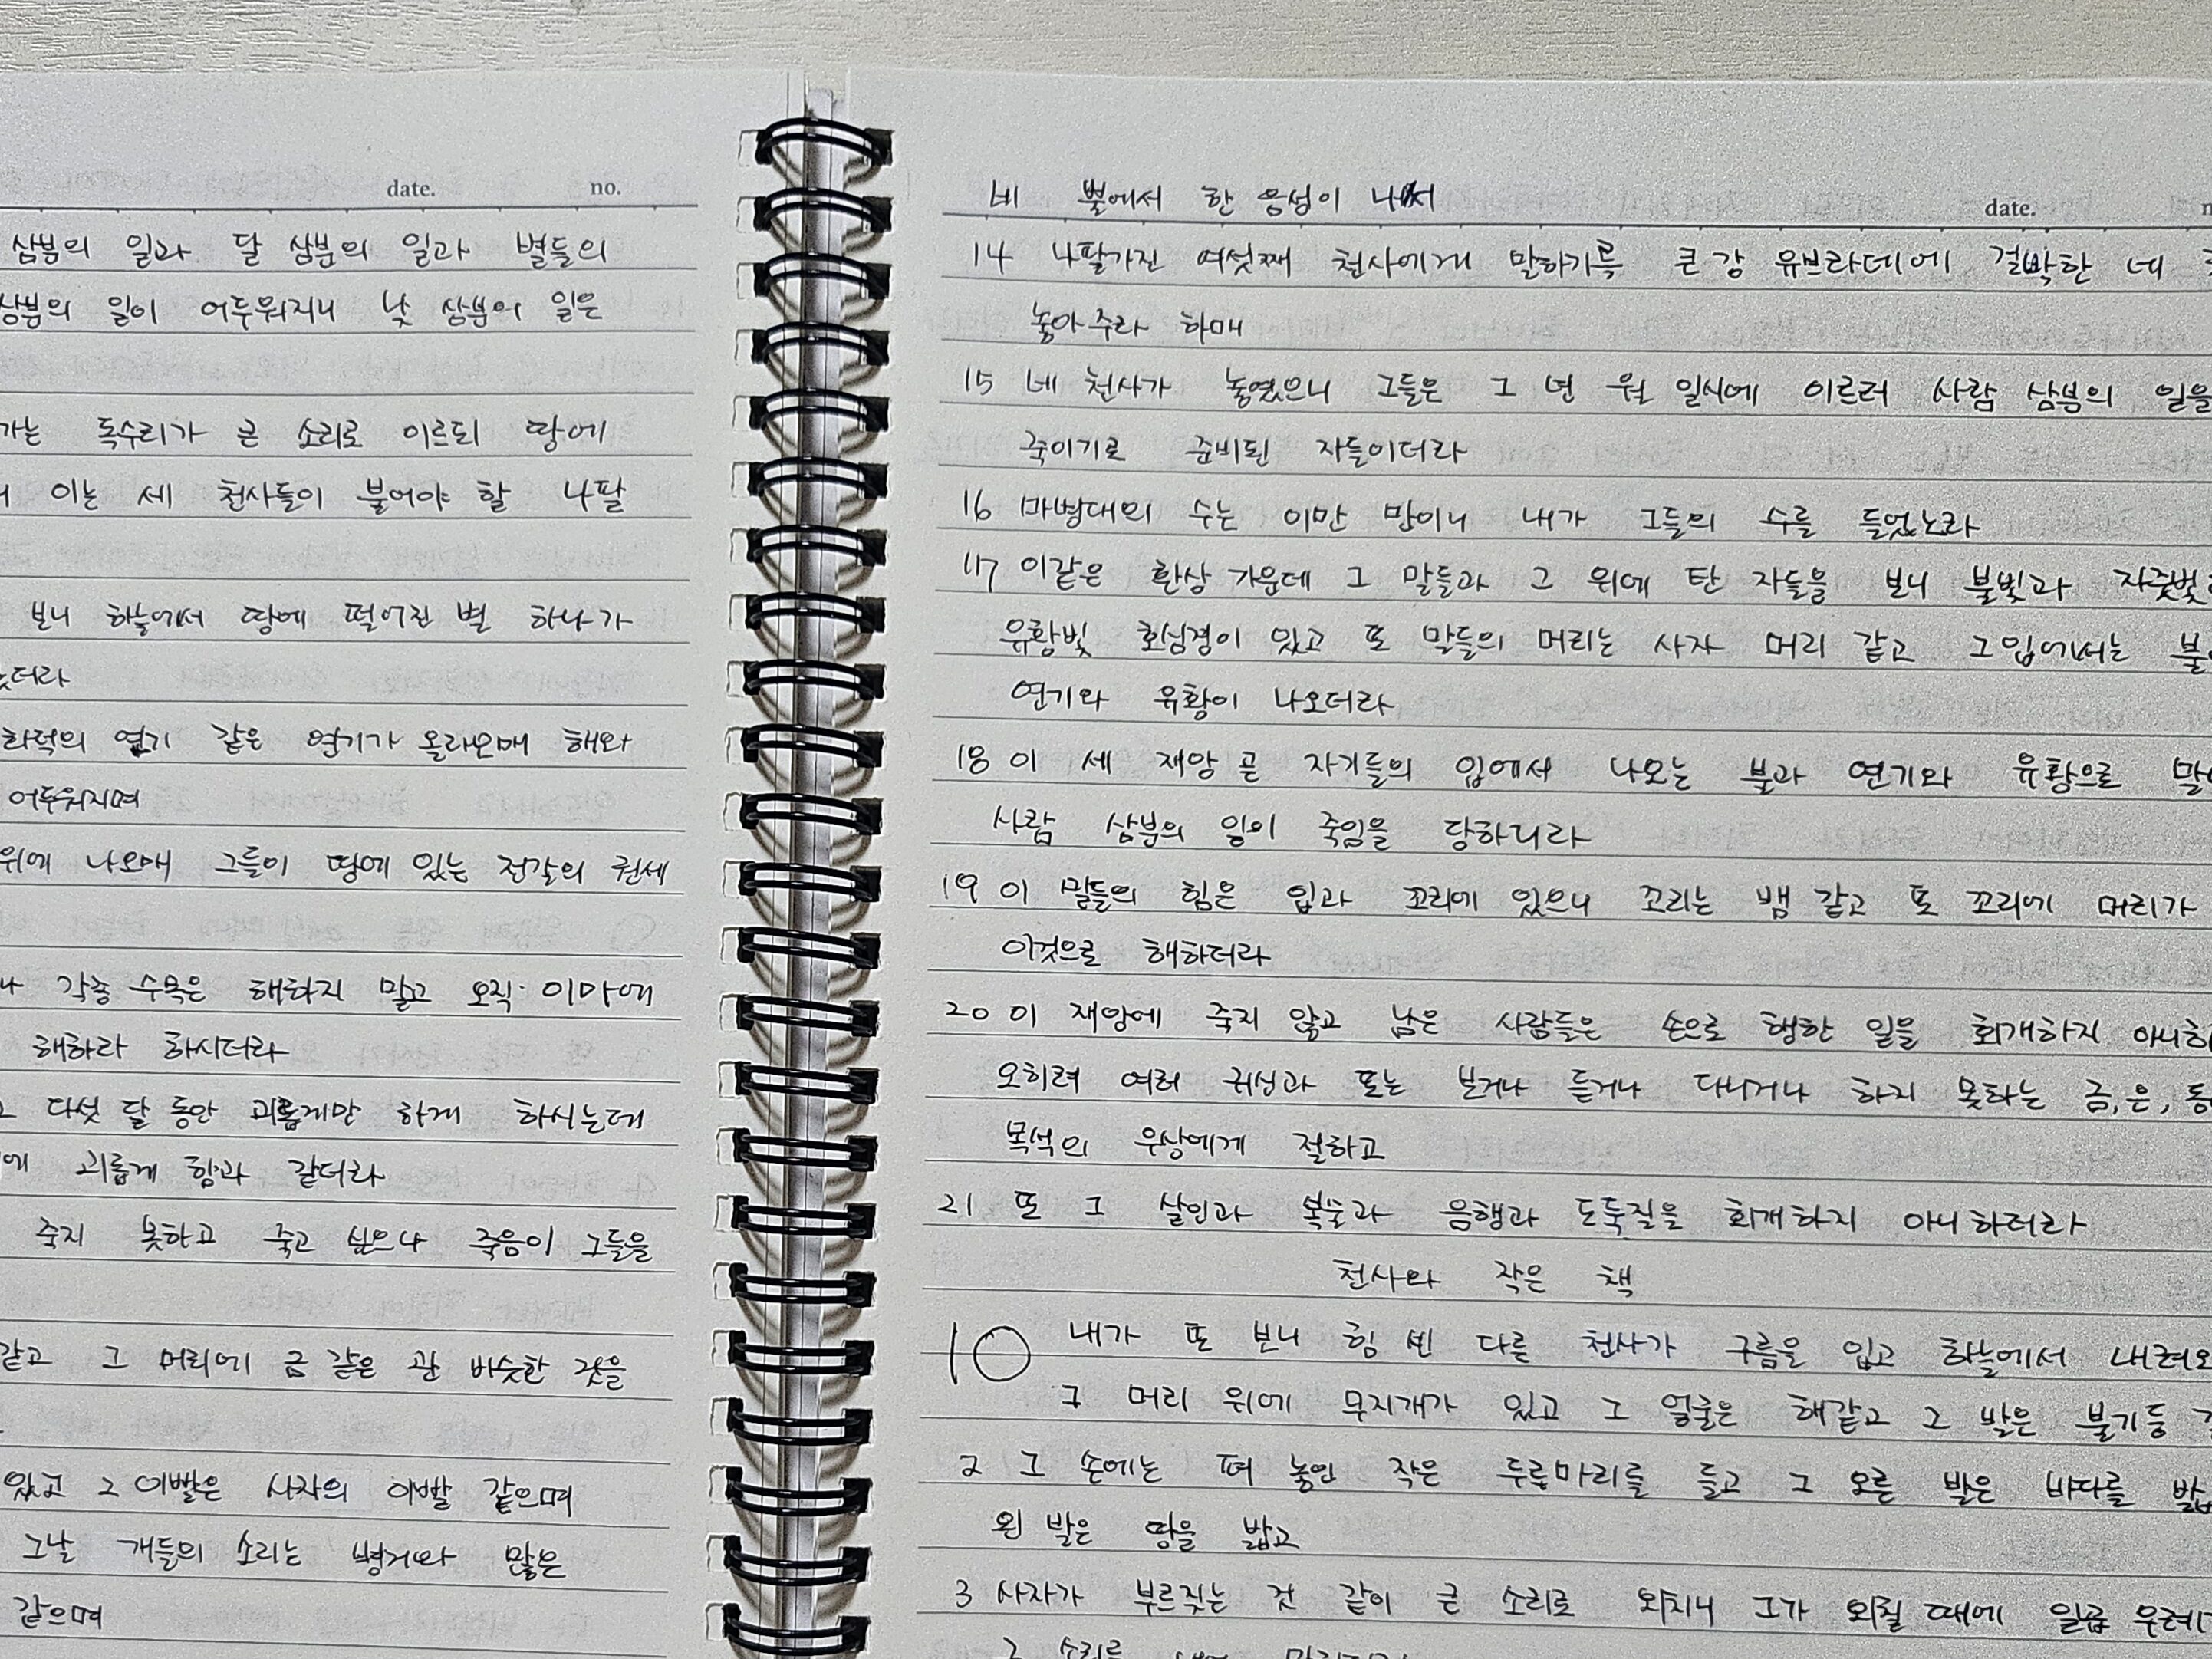 date. no.
삼분의 일과 달 삼분의 일과 별들의
삼분의 일이 어두워지니 낮 삼분의 일은
가는 독수리가 큰 소리로 이르되 땅에
이는 세 천사들이 불어야 할 나팔
보니 하늘에서 땅에 떨어진 별 하나가
더라
화덕의 연기 같은 연기가 올라오매 해와
어두워지며
위에 나오매 그들이 땅에 있는 전갈의 권세
각종 수목은 해하지 말고 오직 이마에
해하라 하시더라
다섯 달 동안 괴롭게만 하게 하시는데
에 괴롭게 함과 같더라
죽지 못하고 죽고 싶으나 죽음이 그들을
같고 그 머리에 금 같은 관 비슷한 것을
있고 그 이빨은 사자의 이빨 같으며
그날 개들의 소리는 병거와 많은
같으며
네 뿔에서 한 음성이 나서
date.
14 나팔가진 여섯째 천사에게 말하기를 큰 강 유브라데에 결박한 네
놓아 주라 하매
15 네 천사가 놓였으니 그들은 그 년 월 일시에 이르러 사람 삼분의 일을
죽이기로 준비된 자들이더라
16 마병대의 수는 이만 만이니 내가 그들의 수를 들었노라
17 이같은 환상 가운데 그 말들과 그 위에 탄 자들을 보니 불빛과 자줏빛
유황빛 호심경이 있고 또 말들의 머리는 사자 머리 같고 그 입에서는 불
연기와 유황이 나오더라
18 이 세 재앙 곧 자기들의 입에서 나오는 불과 연기와 유황으로
사람 삼분의 일이 죽임을 당하니라
19 이 말들의 힘은 입과 꼬리에 있으니 꼬리는 뱀 같고 또 꼬리에 머리가
이것으로 해하더라
20 이 재앙에 죽지 않고 남은 사람들은 손으로 행한 일을 회개하지 아니하
오히려 여러 귀신과 또는 보거나 듣거나 다니거나 하지 못하는 금, 은, 동
목석의 우상에게 절하고
21 또 그 살인과 복술과 음행과 도둑질을 회개하지 아니하더라
천사와 작은 책
10 내가 또 보니 힘 센 다른 천사가 구름을 입고 하늘에서 내려오
그 머리 위에 무지개가 있고 그 얼굴은 해같고 그 발은 불기둥
2 그 손에는 펴 놓인 작은 두루마리를 들고 그 오른 발은 바다를 밟
왼 발은 땅을 밟고
3 사자가 부르짖는 것 같이 큰 소리로 외치니 그가 외칠 때에 일곱 우레
그 소리를